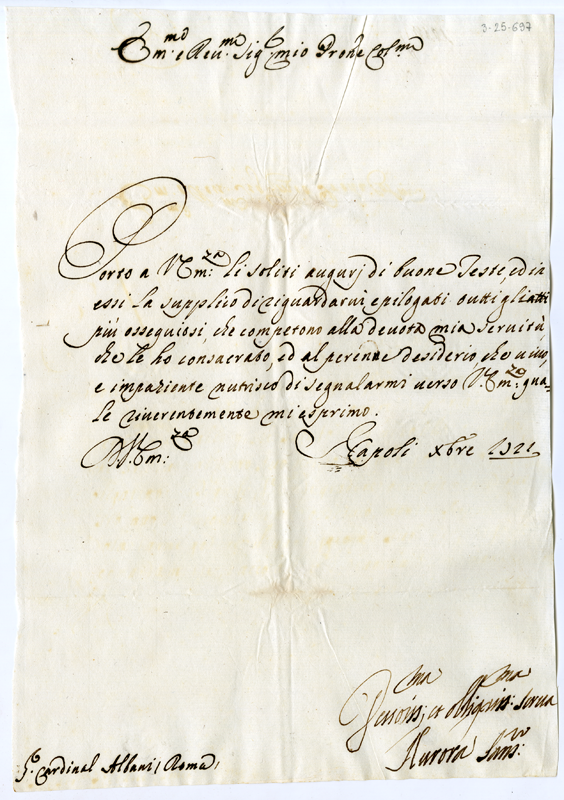 3-25-697
Em.mo e Reu.mo Sig.r mio Prone Col.mo
Porto a V.Em.za li soliti augurj di buone Feste, ed in
essi la supplico di riguardarvi epilogati tutti gli atti
più ossequiosi, che competono alla devota mia servitù,
che le ho consacrato, ed al perenne desiderio, che vivo,
e impaziente nutrisco di segnalarmi verso V.Em.za qua-
le riverentemente mi esprimo.
D.V.Em.za Napoli Xbre 1721
Deuotis.ma, et obligatis.ma serua
Aurora Sans.
S.r Cardinal Albani, Roma,